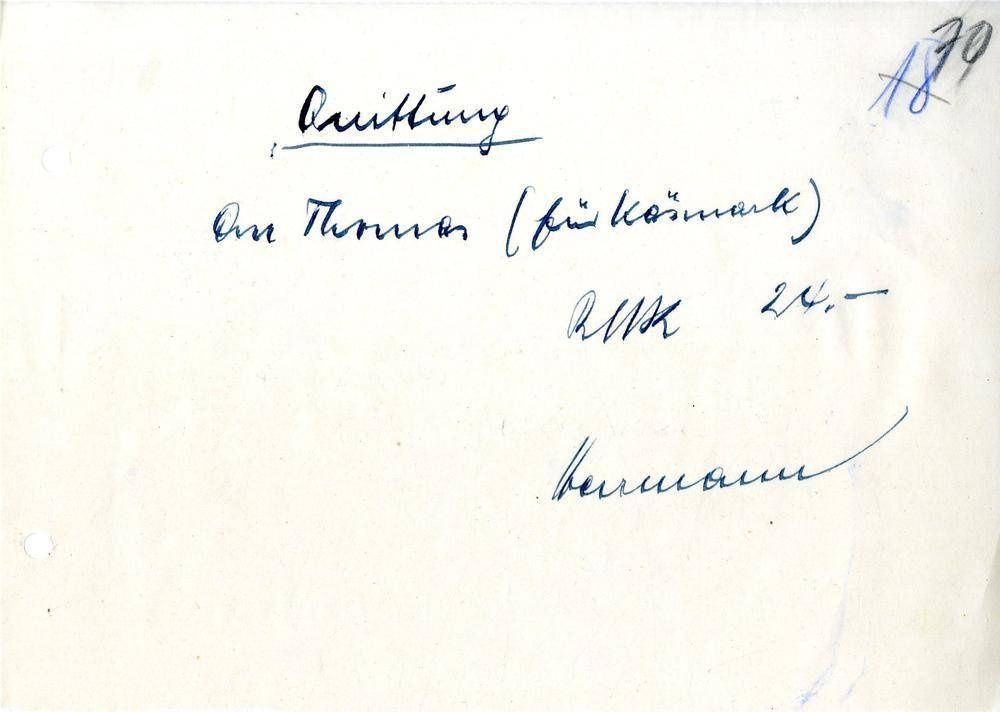 79
18
Quittung
An Thomas (für Käsmark)
RMK 24.—
Herrmann